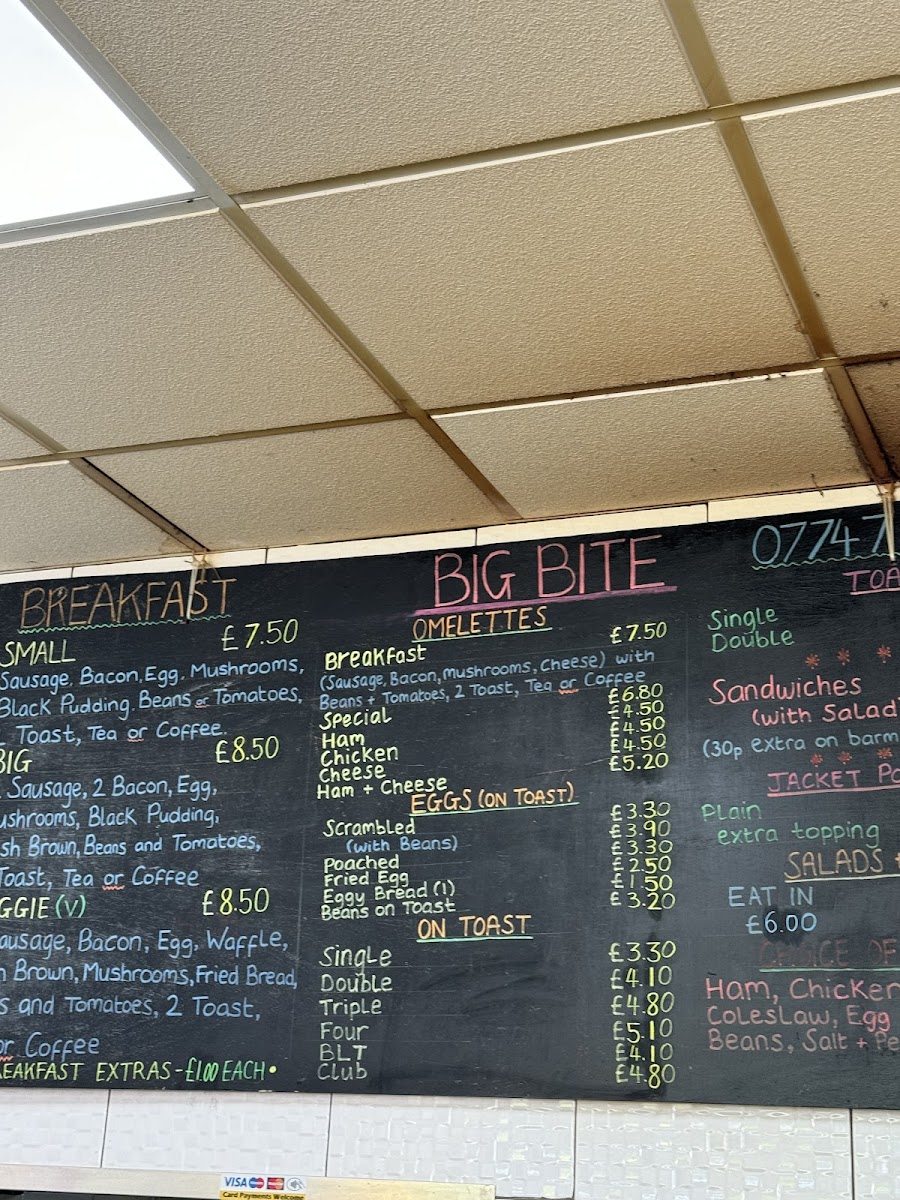 BREAKFAST
SMALL £7.50
Sausage, Bacon, Egg, Mushrooms,
Black Pudding, Beans or Tomatoes,
Toast, Tea or Coffee.
BIG £8.50
Sausage, 2 Bacon, Egg,
ushrooms, Black Pudding,
sh Brown, Beans and Tomatoes,
Toast, Tea or Coffee
GGIE (V) £8.50
ausage, Bacon, Egg, Waffle,
Brown, Mushrooms, Fried Bread,
s and Tomatoes, 2 Toast,
or Coffee
REAKFAST EXTRAS - £1.00 EACH •
BIG BITE
OMELETTES
Breakfast £7.50
(Sausage, Bacon, mushrooms, Cheese) with
Beans + Tomatoes, 2 Toast, Tea or Coffee
Special £6.80
Ham £4.50
Chicken £4.50
Cheese £4.50
Ham + Cheese £5.20
EGGS (ON TOAST)
Scrambled £3.30
(with Beans) £3.90
Poached £3.30
Fried Egg £2.50
Eggy Bread (1) £1.50
Beans on Toast £3.20
ON TOAST
Single £3.30
Double £4.10
Triple £4.80
Four £5.10
BLT £4.10
Club £4.80
07747
TOA
Single
Double
Sandwiches
(with Salad)
(30p extra on barm
JACKET PO
Plain
extra topping
SALADS
EAT IN
£6.00
CHOICE OF
Ham, Chicken
Coleslaw, Egg
Beans, Salt + Pe
VISA
Card Payments Welcome